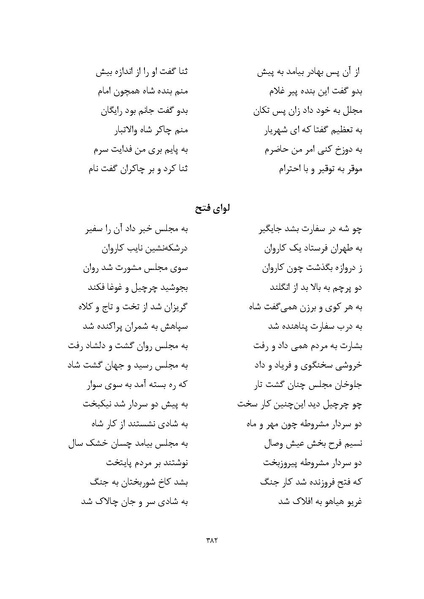 از آن پس بهادر بیامد به پیش ثنا گفت او را از اندازه بیش
بدو گفت این بنده پیر غلام منم بنده شاه همچون امام
مجلل به خود داد زان پس تکان بدو گفت جانم بود رایگان
به تعظیم گفتا که ای شهریار منم چاکر شاه والاتبار
به دوزخ کنی امر من حاضرم به پایم بری من فدایت سرم
موقر به توقیر و با احترام ثنا کرد و بر چاکران گفت نام
لوای فتح
چو شه در سفارت بشد جایگیر به مجلس خبر داد آن را سفیر
به طهران فرستاد یک کاروان درشکه‌نشین نایب کاروان
ز دروازه بگذشت چون کاروان سوی مجلس مشورت شد روان
دو پرچم به بالا بد از انگلند بجوشید چرچیل و غوغا فکند
به هر کوی و برزن همی‌گفت شاه گریزان شد از تخت و تاج و کلاه
به درب سفارت پناهنده شد سپاهش به شمران پراکنده شد
بشارت به مردم همی داد و رفت به مجلس روان گشت و دلشاد رفت
خروشی سخنگوی و فریاد و داد به مجلس رسید و جهان گشت شاد
جلوخان مجلس چنان گشت تار که ره بسته آمد به سوی سوار
چو چرچیل دید این‌چنین کار سخت به پیش دو سردار شد نیکبخت
دو سردار مشروطه چون مهر و ماه به شادی نشستند از کار شاه
نسیم فرح بخش عیش وصال به مجلس بیامد چسان خشک سال
دو سردار مشروطه پیروزبخت نوشتند بر مردم پایتخت
که فتح فروزنده شد کار جنگ بشد کاخ شوربختان به جنگ
غریو هیاهو به افلاک شد به شادی سر و جان چالاک شد
۳۸۲